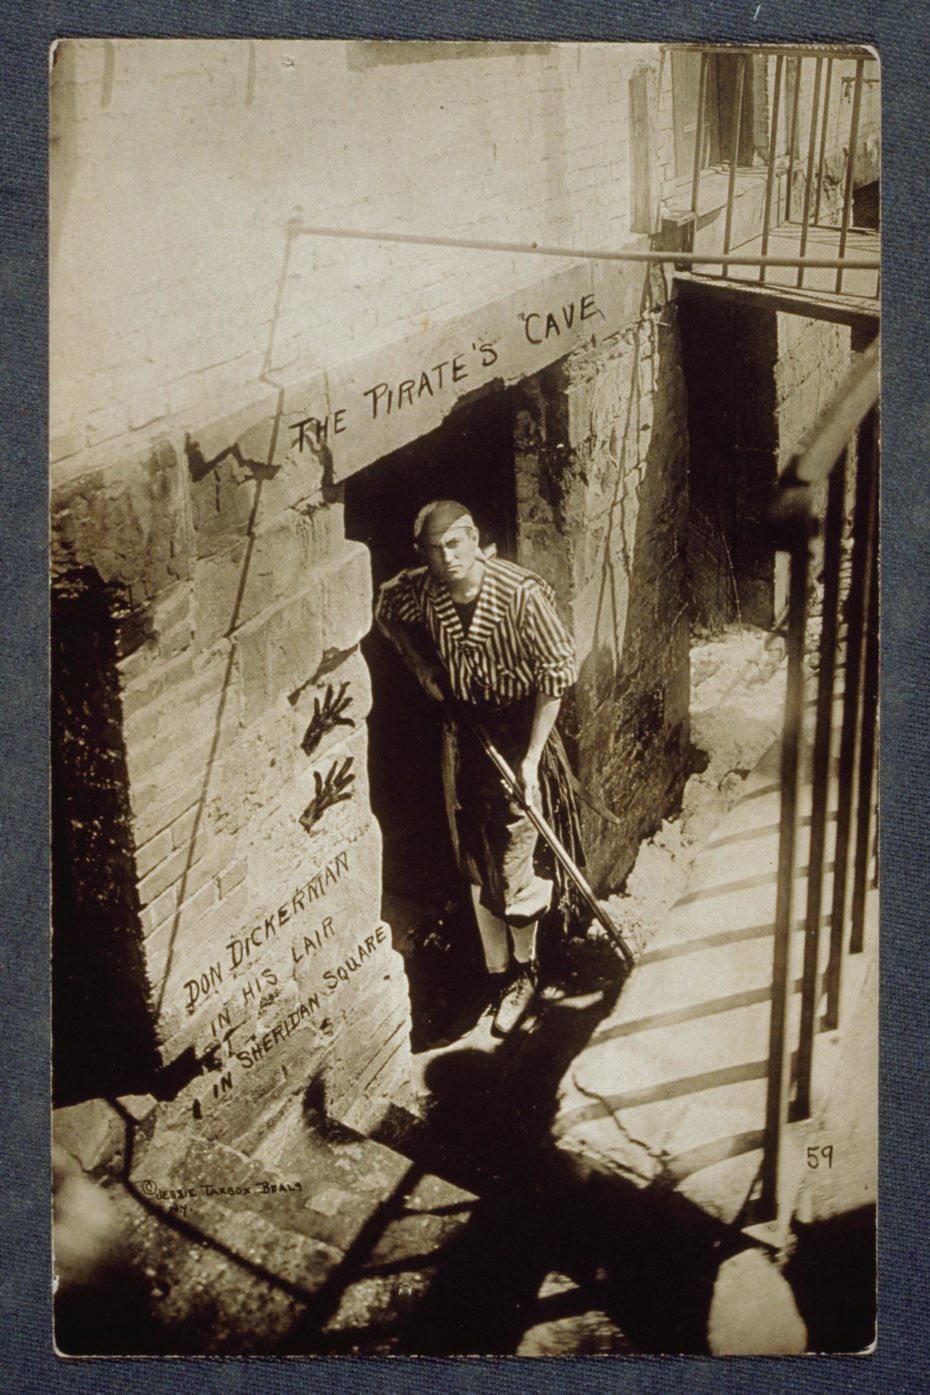 THE PIRATE'S CAVE
DON DICKERMAN
IN HIS LAIR
IN SHERIDAN SQUARE
© JESSIE TARBOX BEALS
N.Y.
59